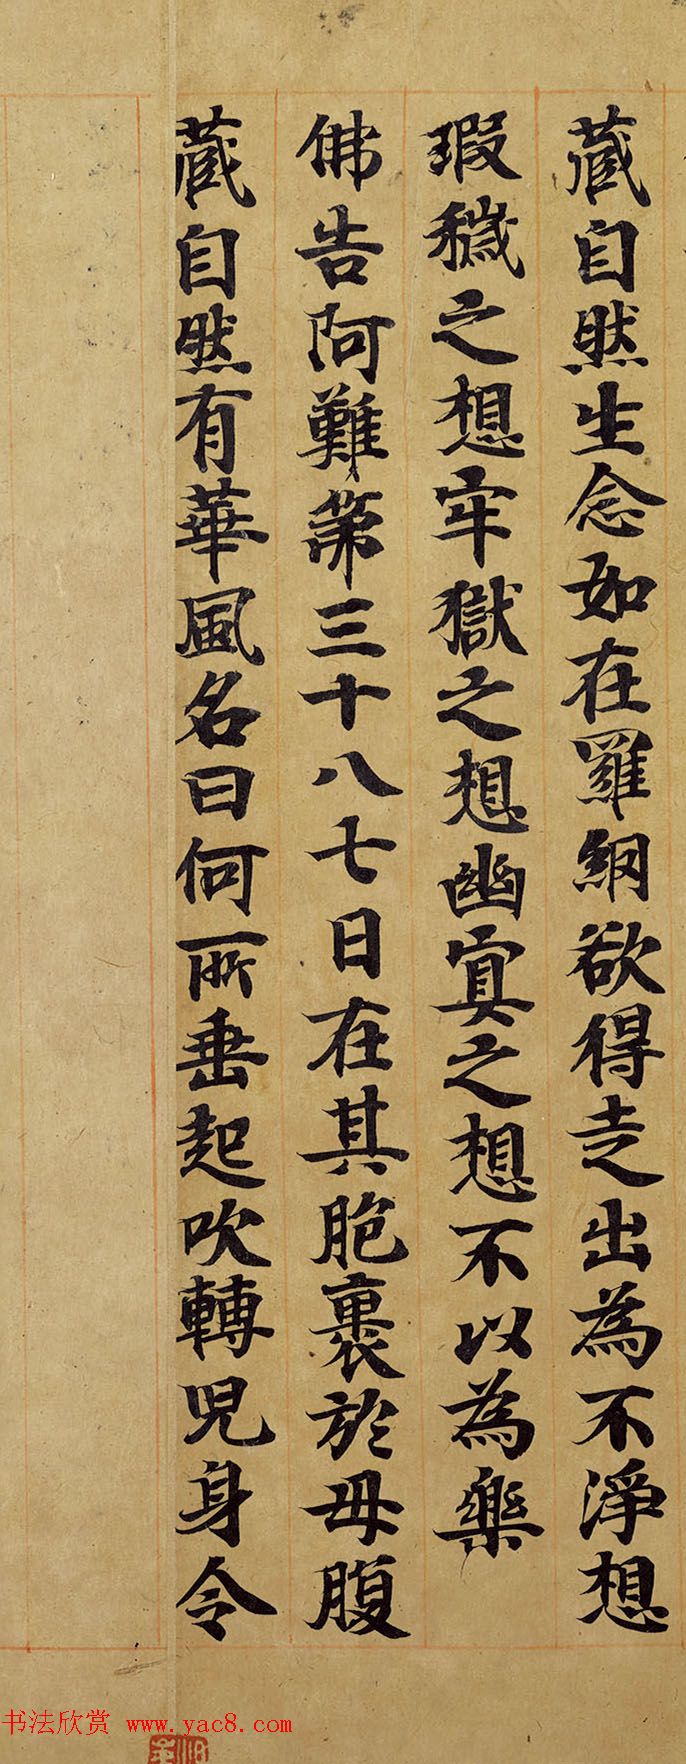 藏自然生念如在羅網欲得走出為不淨想
瑕穢之想牢獄之想幽冥之想不以為樂
佛告阿難第三十八七日在其胞裏於母腹
藏自然有華風名曰何所垂起吹轉兒身令
书法欣赏 www.yac8.com